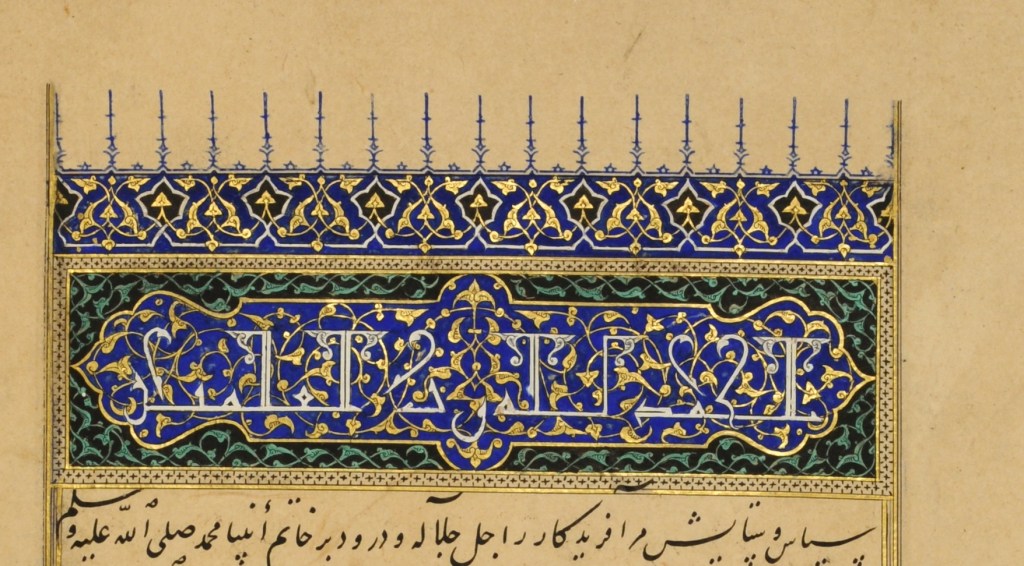 الحمد لله رب العالمين
سپاس و ستایش مر آفریدکار را جل جلاله و درود بر خاتم أنبیا محمد صلی الله علیه وسلم